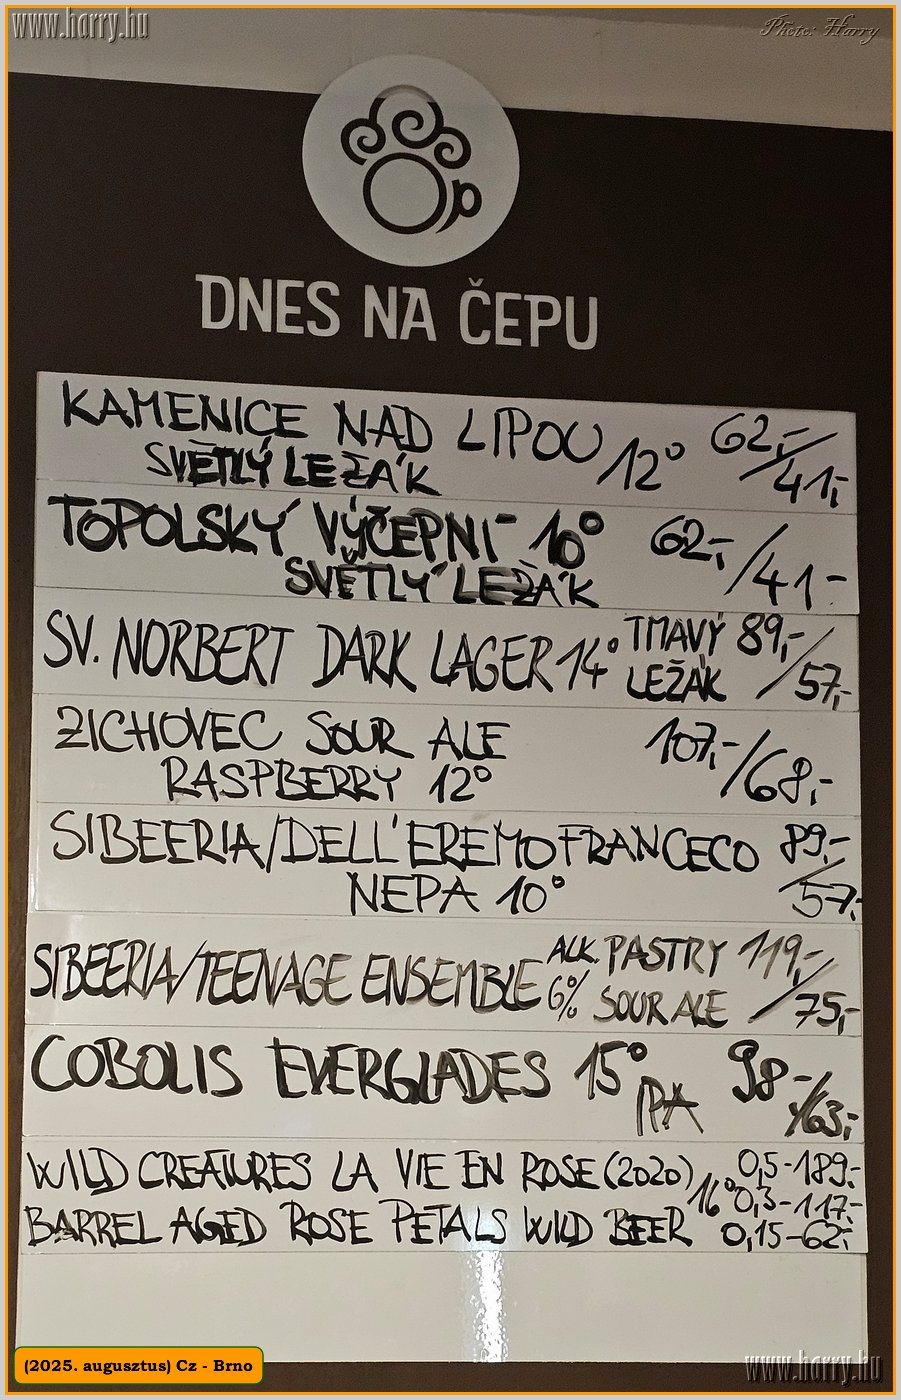 www.harry.hu
Photo: Harry
DNES NA ČEPU
KAMENICE NAD LIPOU 12° 62,-/41,-
SVĚTLÝ LEŽÁK
TOPOLSKÝ VÝČEPNÍ 10° 62,-/41-
SVĚTLÝ LEŽÁK
SV. NORBERT DARK LAGER 14° TMAVÝ 89,-/57,-
LEŽÁK
ZICHOVEC SOUR ALE 107,-/68,-
RASPBERRY 12°
SIBEERIA/DELL'EREMO FRANCECO 89,-/57,-
NEPA 10°
SIBEERIA/TEENAGE ENSEMBLE ALK. PASTRY 119,-/75,-
6% SOUR ALE
COBOLIS EVERGLADES 15° 98,-/63,-
IPA
WILD CREATURES LA VIE EN ROSE (2020) 0,5-189.-
16° 0,3-117.-
BARREL AGED ROSE PETALS WILD BEER 0,15-62,-
(2025. augusztus) Cz - Brno
www.harry.hu